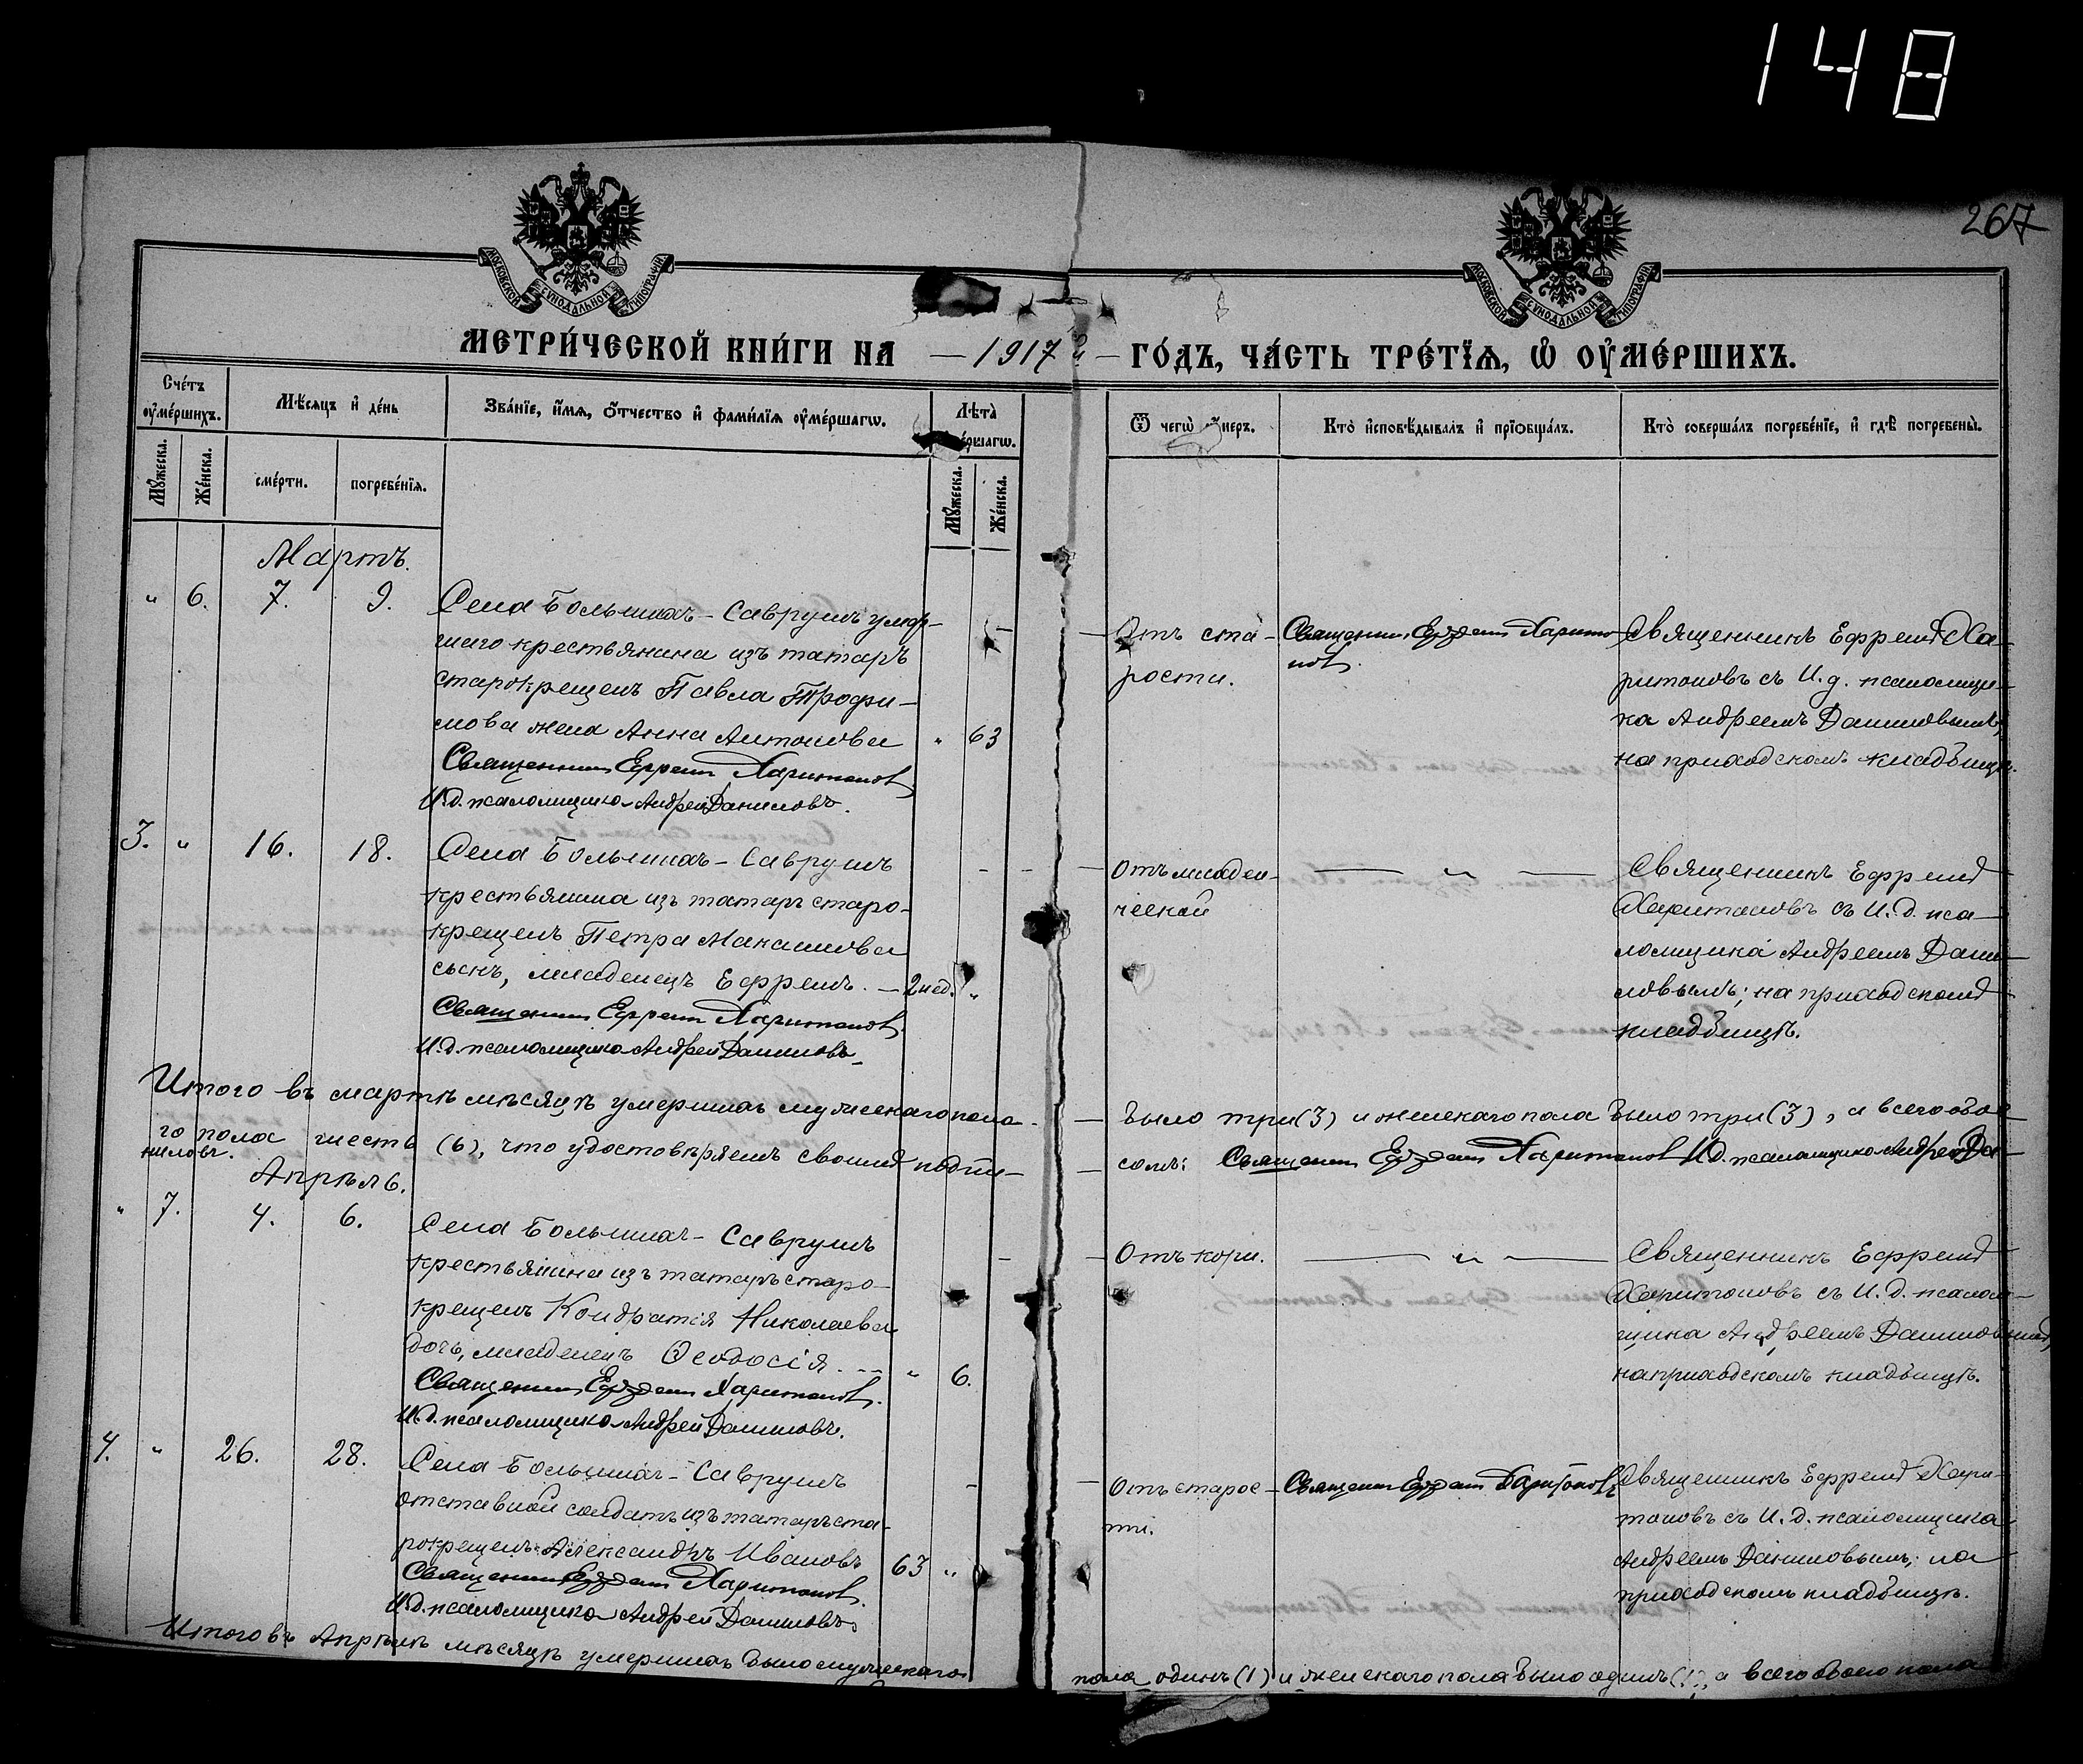 148
267
МОСКОВСКОЙ СѴНОДАЛЬНОЙ ТИПОГРАФІИ
МОСКОВСКОЙ СѴНОДАЛЬНОЙ ТИПОГРАФІИ
МЕТРИ́ЧЕСКОЙ КНИ́ГИ НА — 1917 й — ГО́ДЪ, ЧА́СТЬ ТРЕ́ТЇѦ, Ѡ҆ ОУ҆МЕ́РШИХЪ.
Сче́тъ оу҆ме́ршихъ.
Мѣ́сѧцъ и҆ де́нь
Зва́нїе, и҆́мѧ, ѻ҆́тчество и҆ фами́лїѧ оу҆ме́ршагѡ.
Лѣ́та
Ѿ чегѡ̀
Кто̀ и҆сповѣ́дывалъ и҆ прїѻбща́лъ.
Кто̀ соверша́лъ погребе́нїе, и҆ гдѣ̀ погребены̀.
Мꙋ́жеска.
Же́нска.
сме́рти.
погребе́нїѧ.
Мꙋ́жеска.
Же́нска.
Мартъ.
" 6. 7. 9.
Села Большихъ-Саврушъ умер-
шаго крестьянина изъ татаръ
старокрещенъ Павла Трофи-
мова жена Анна Антонова " 63
Священникъ Ефремъ Харитоновъ
И.д. псаломщика Андрей Даниловъ.
Отъ ста-
рости.
Священникъ Ефремъ Харито-
новъ.
Священникъ Ефремъ Ха-
ритоновъ съ И.д. псаломщи-
ка Андреемъ Даниловымъ,
на приходскомъ кладбищѣ.
3. " 16. 18.
Села Большихъ-Саврушъ
крестьянина изъ татаръ старо-
крещенъ Петра Макашова
сынъ, младенецъ Ефремъ. — 2 нед. "
Священникъ Ефремъ Харитоновъ.
И.д. псаломщика Андрей Даниловъ.
Отъ младен-
ческой
— " —
Священникъ Ефремъ
Харитоновъ съ И.д. пса-
ломщика Андреемъ Дани-
ловымъ; на приходскомъ
кладбищѣ.
Итого въ мартѣ мѣсяцѣ умершихъ мужескаго пола — было три (3) и женскаго пола было три (3), а всего обое-
го пола шесть (6), что удостовѣряемъ своимъ подпи-
сомъ: Священникъ Ефремъ Харитоновъ И.д. псаломщика Андрей Да-
ниловъ.
Апрѣль.
" 7. 4. 6.
Села Большихъ-Саврушъ
крестьянина изъ татаръ старо-
крещенъ Кондратія Николаева
дочь, младенецъ Ѳеодосія. -- " 6.
Священникъ Ефремъ Харитоновъ.
И.д. псаломщика Андрей Даниловъ.
Отъ кори.
— " —
Священникъ Ефремъ
Харитоновъ съ И.д. псалом-
щика Андреемъ Даниловымъ,
на приходскомъ кладбищѣ.
4. " 26. 28.
Села Большихъ-Саврушъ
отставной солдатъ изъ татаръ ста-
рокрещенъ Александръ Ивановъ 63 "
Священникъ Ефремъ Харитоновъ.
И.д. псаломщика Андрей Даниловъ.
Отъ старос-
ти.
Священникъ Ефремъ Харитоновъ
Священникъ Ефремъ Хари-
тоновъ съ И.д. псаломщика
Андреемъ Даниловымъ; на
приходскомъ кладбищѣ.
Итого въ Апрѣлѣ мѣсяцѣ умершихъ было мужескаго
пола одинъ (1) и женскаго пола было одинъ (1), а всего обоего пола